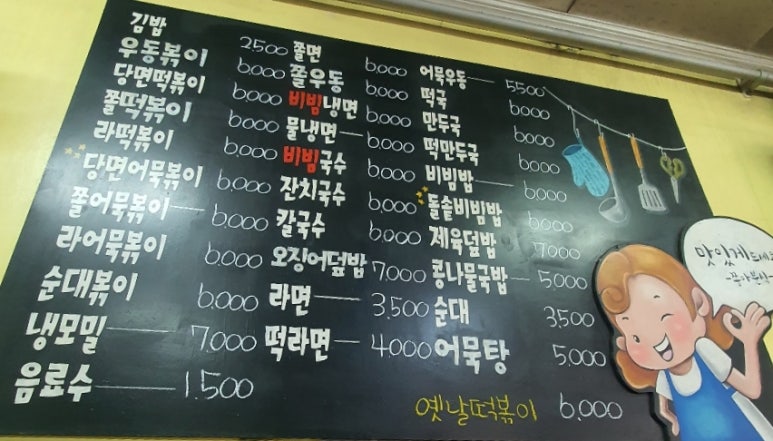 김밥 2500
우동볶이 6,000
당면떡볶이 6,000
쫄떡볶이 6,000
라떡볶이 6,000
당면어묵볶이 6,000
쫄어묵볶이 6,000
라어묵볶이 6,000
순대볶이 6,000
냉모밀 7,000
음료수 1,500
쫄면 6,000
쫄우동 6,000
비빔냉면 6,000
물냉면 6,000
비빔국수 6,000
잔치국수 6,000
칼국수 6,000
오징어덮밥 7,000
라면 3,500
떡라면 4000
어묵우동 5500
떡국 6000
만두국 6000
떡만두국 6,000
비빔밥 6,000
돌솥비빔밥 6,000
제육덮밥 7,000
콩나물국밥 5,000
순대 3,500
어묵탕 5,000
옛날떡볶이 6,000
맛있게드세